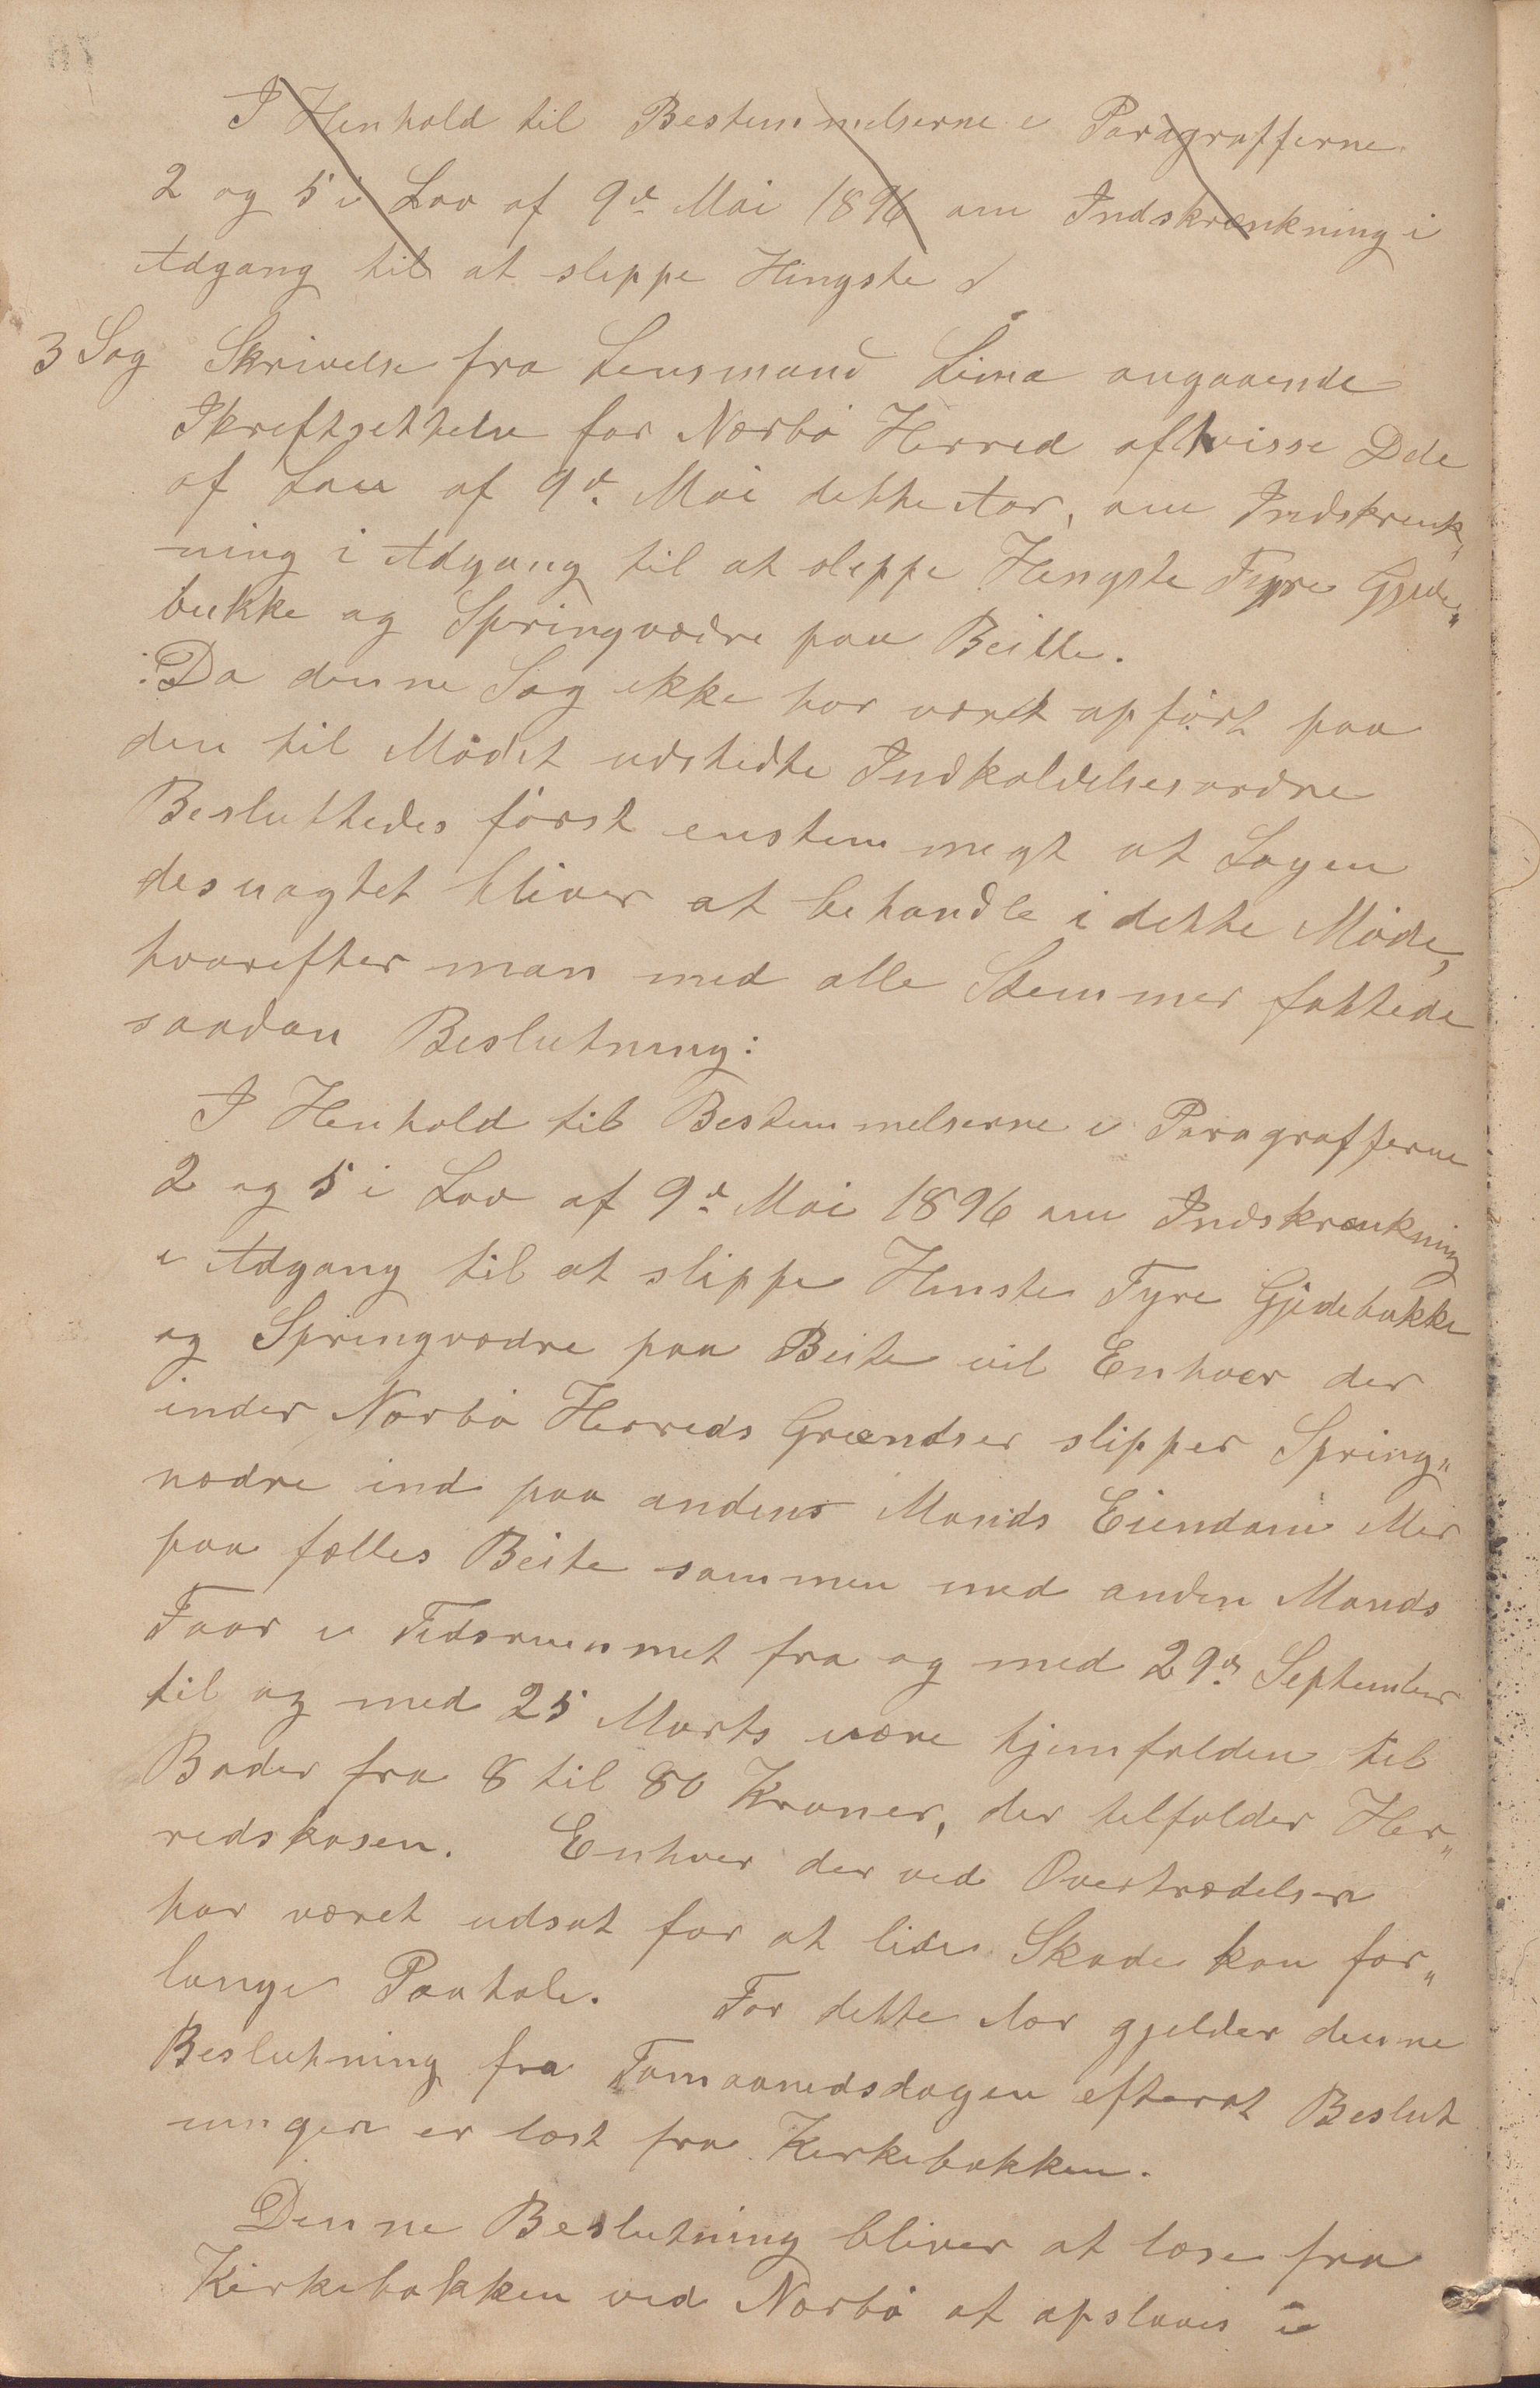 I Henhold til Bestemmelserne i Paragrafferne
2 og 5 i Lov af 9de Mai 1896 om Indskrænkning i
Adgang til at slippe Hingste
3 Sag Skrivelse fra Lensmand Lima angaaende
Ikreftsettelse for Nærbø Herred af visse Dele
af Lov af 9de Mai dette Aar, om Indskrenk„
ning i Adgang til at sleppe Hengste Tyre Gjede„
bukke og Springvædre paa Beitte.
:Da denne Sag ikke har været opført paa
den til Mødet udstedte Indkaldelsesordre
Besluttedes først enstemmegt at Sagen
desuagtet bliver at behandle i dette Møde,
hvorefter man med alle Stemmer fattede
saadan Beslutning:
I Henhold til Bestemmelserne i Paragrafferne
2 og 5 i Lov af 9de Mai 1896 om Indskrænkning
i Adgang til at slippe Henste Tyre Gjedebukke
og Springvædre paa Beite vil Enhver der
inder Nærbø Herreds Grændser slipper Spring„
vædre ind paa andens Mands Eiendom eller
paa fælles Beite sammen med anden Mands
Faar i Tidsrummet fra og med 29de September
til og med 25 Marts være hjemfalden til
Bøder fra 8 til 80 Kroner, der tilfalder Her„
redskasen. Enhver der ved Overtrædelsen
har været udsat for at lide Skade kan for„
lange Paatale. For dette Aar gjelder denne
Beslutning fra Tomaanedsdagen efterat Beslut
ningen er læst fra Kirkebakken.
Denne Beslutning bliver at læse fra
Kirkebakken ved Nærbø at opslaaes i